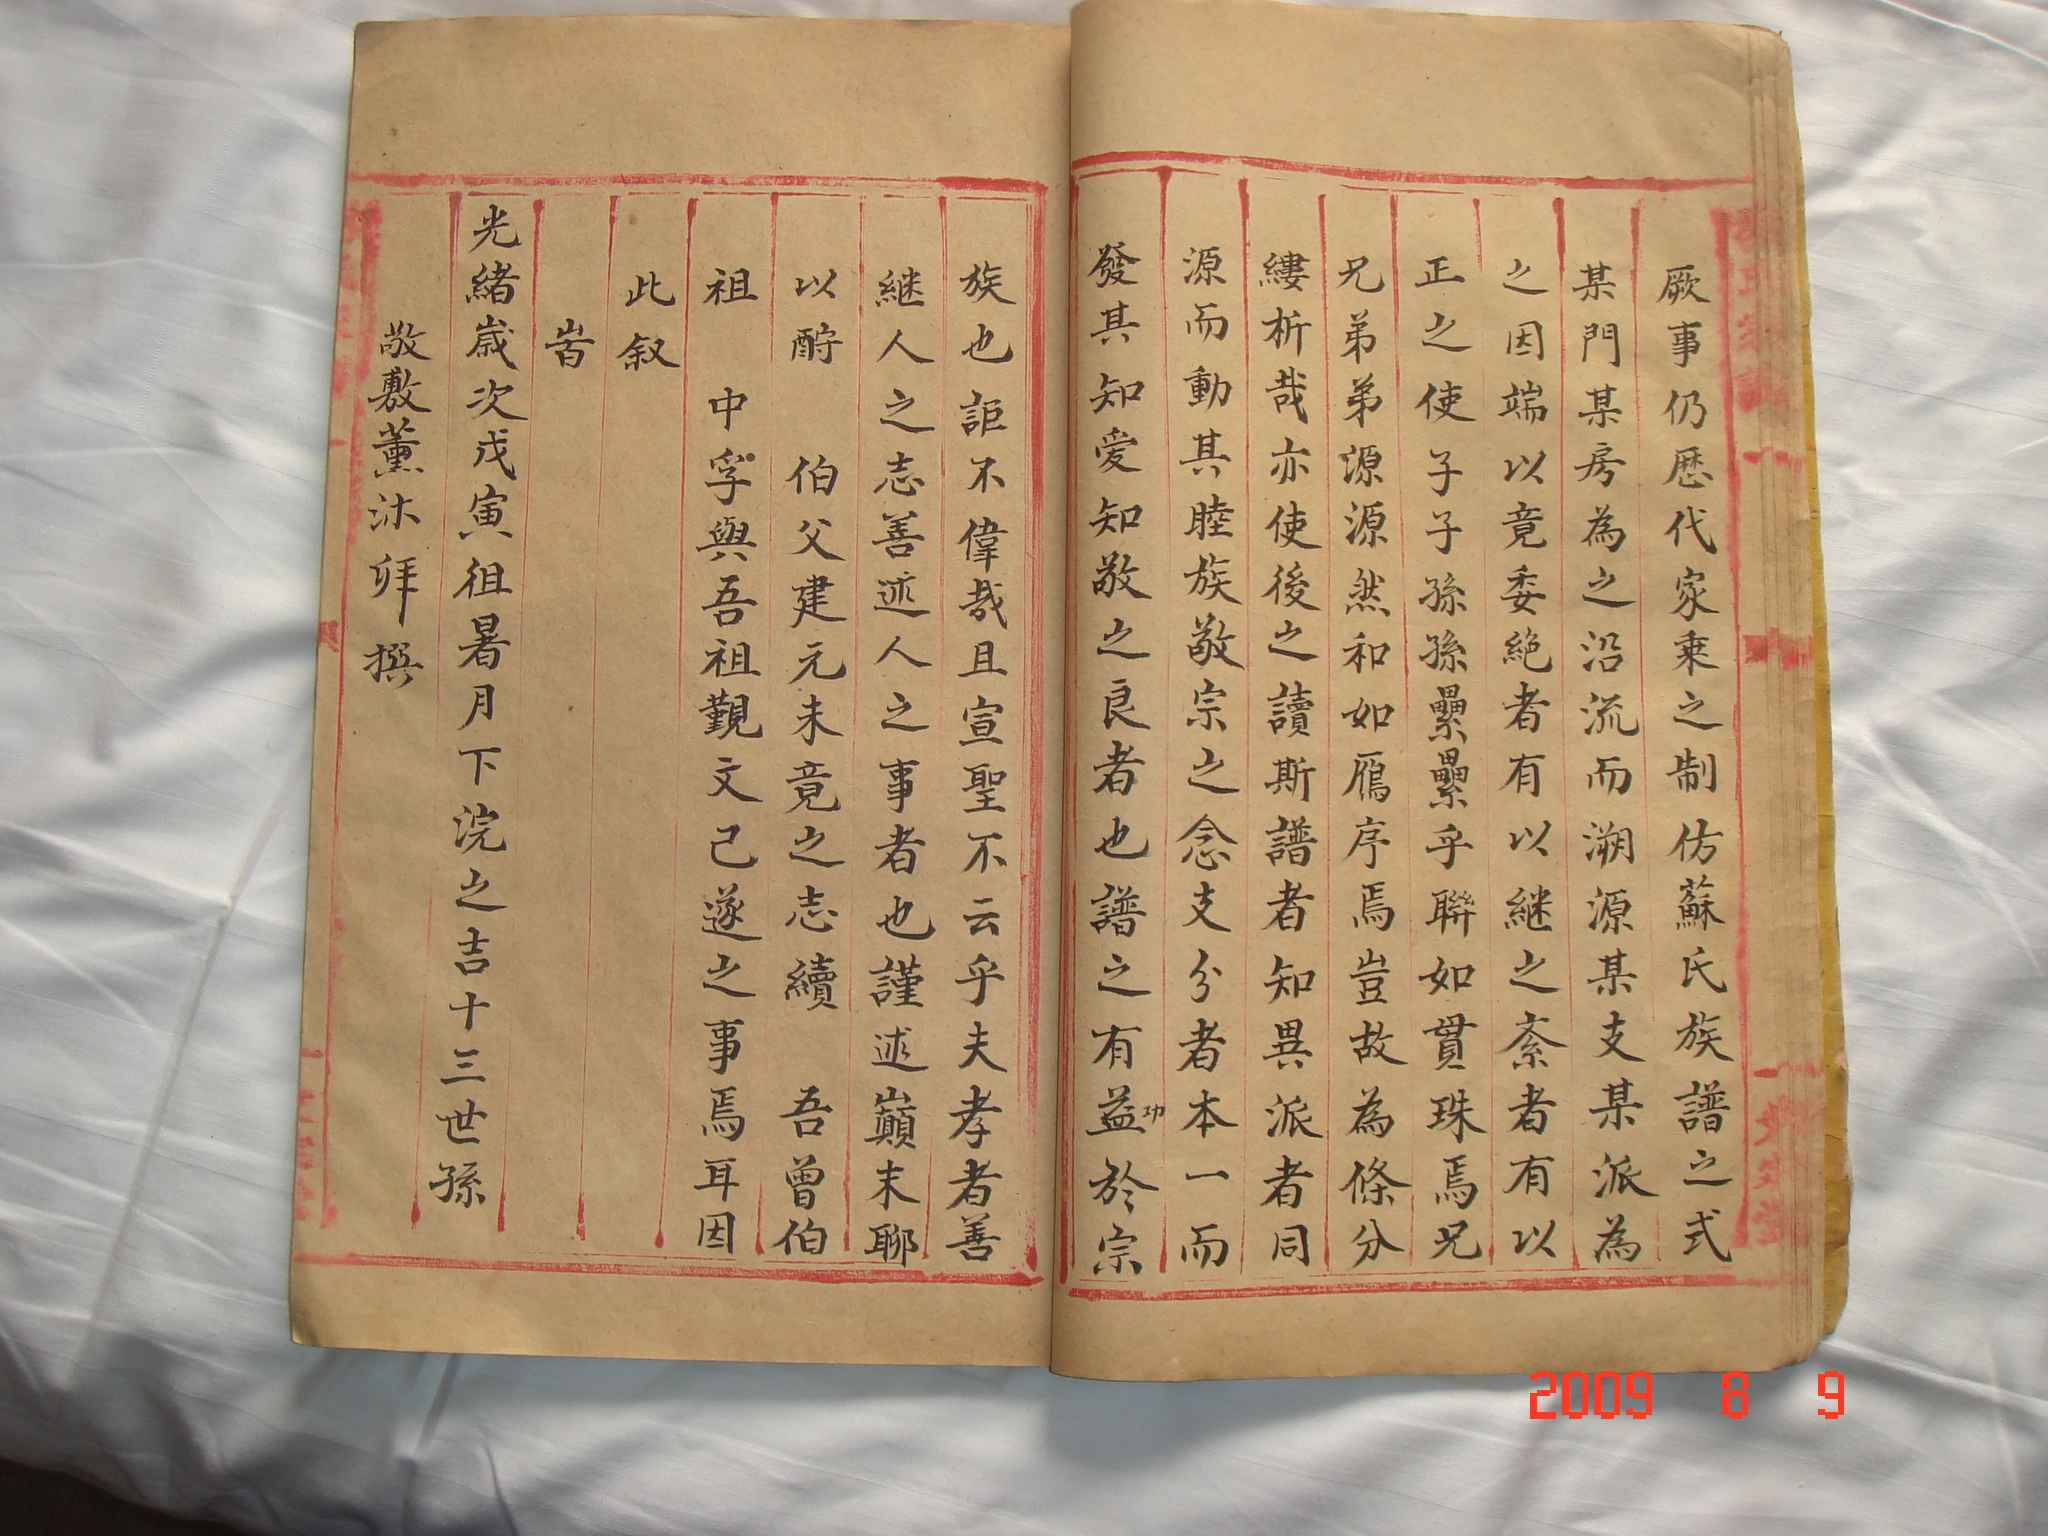 厥事仍歷代家乘之制仿蘇氏族譜之式
某門某房為之沿流而溯源某支某派為
之因端以竟委絕者有以繼之紊者有以
正之使子子孫孫纍纍乎聯如貫珠焉兄
兄弟弟源源然和如雁序焉豈故為條分
縷析哉亦使後之讀斯譜者知異派者同
源而動其睦族敬宗之念支分者本一而
發其知愛知敬之良者也譜之有益功於宗
族也詎不偉哉且宣聖不云乎夫孝者善
継人之志善述人之事者也謹述巔末聊
以酧 伯父建元未竟之志續 吾曾伯
祖 中孚與吾祖覲文己遂之事焉耳因
此叙
旹
光緒歲次戊寅徂暑月下浣之吉十三世孫
敬敷薰沐拜撰
2009 8 9